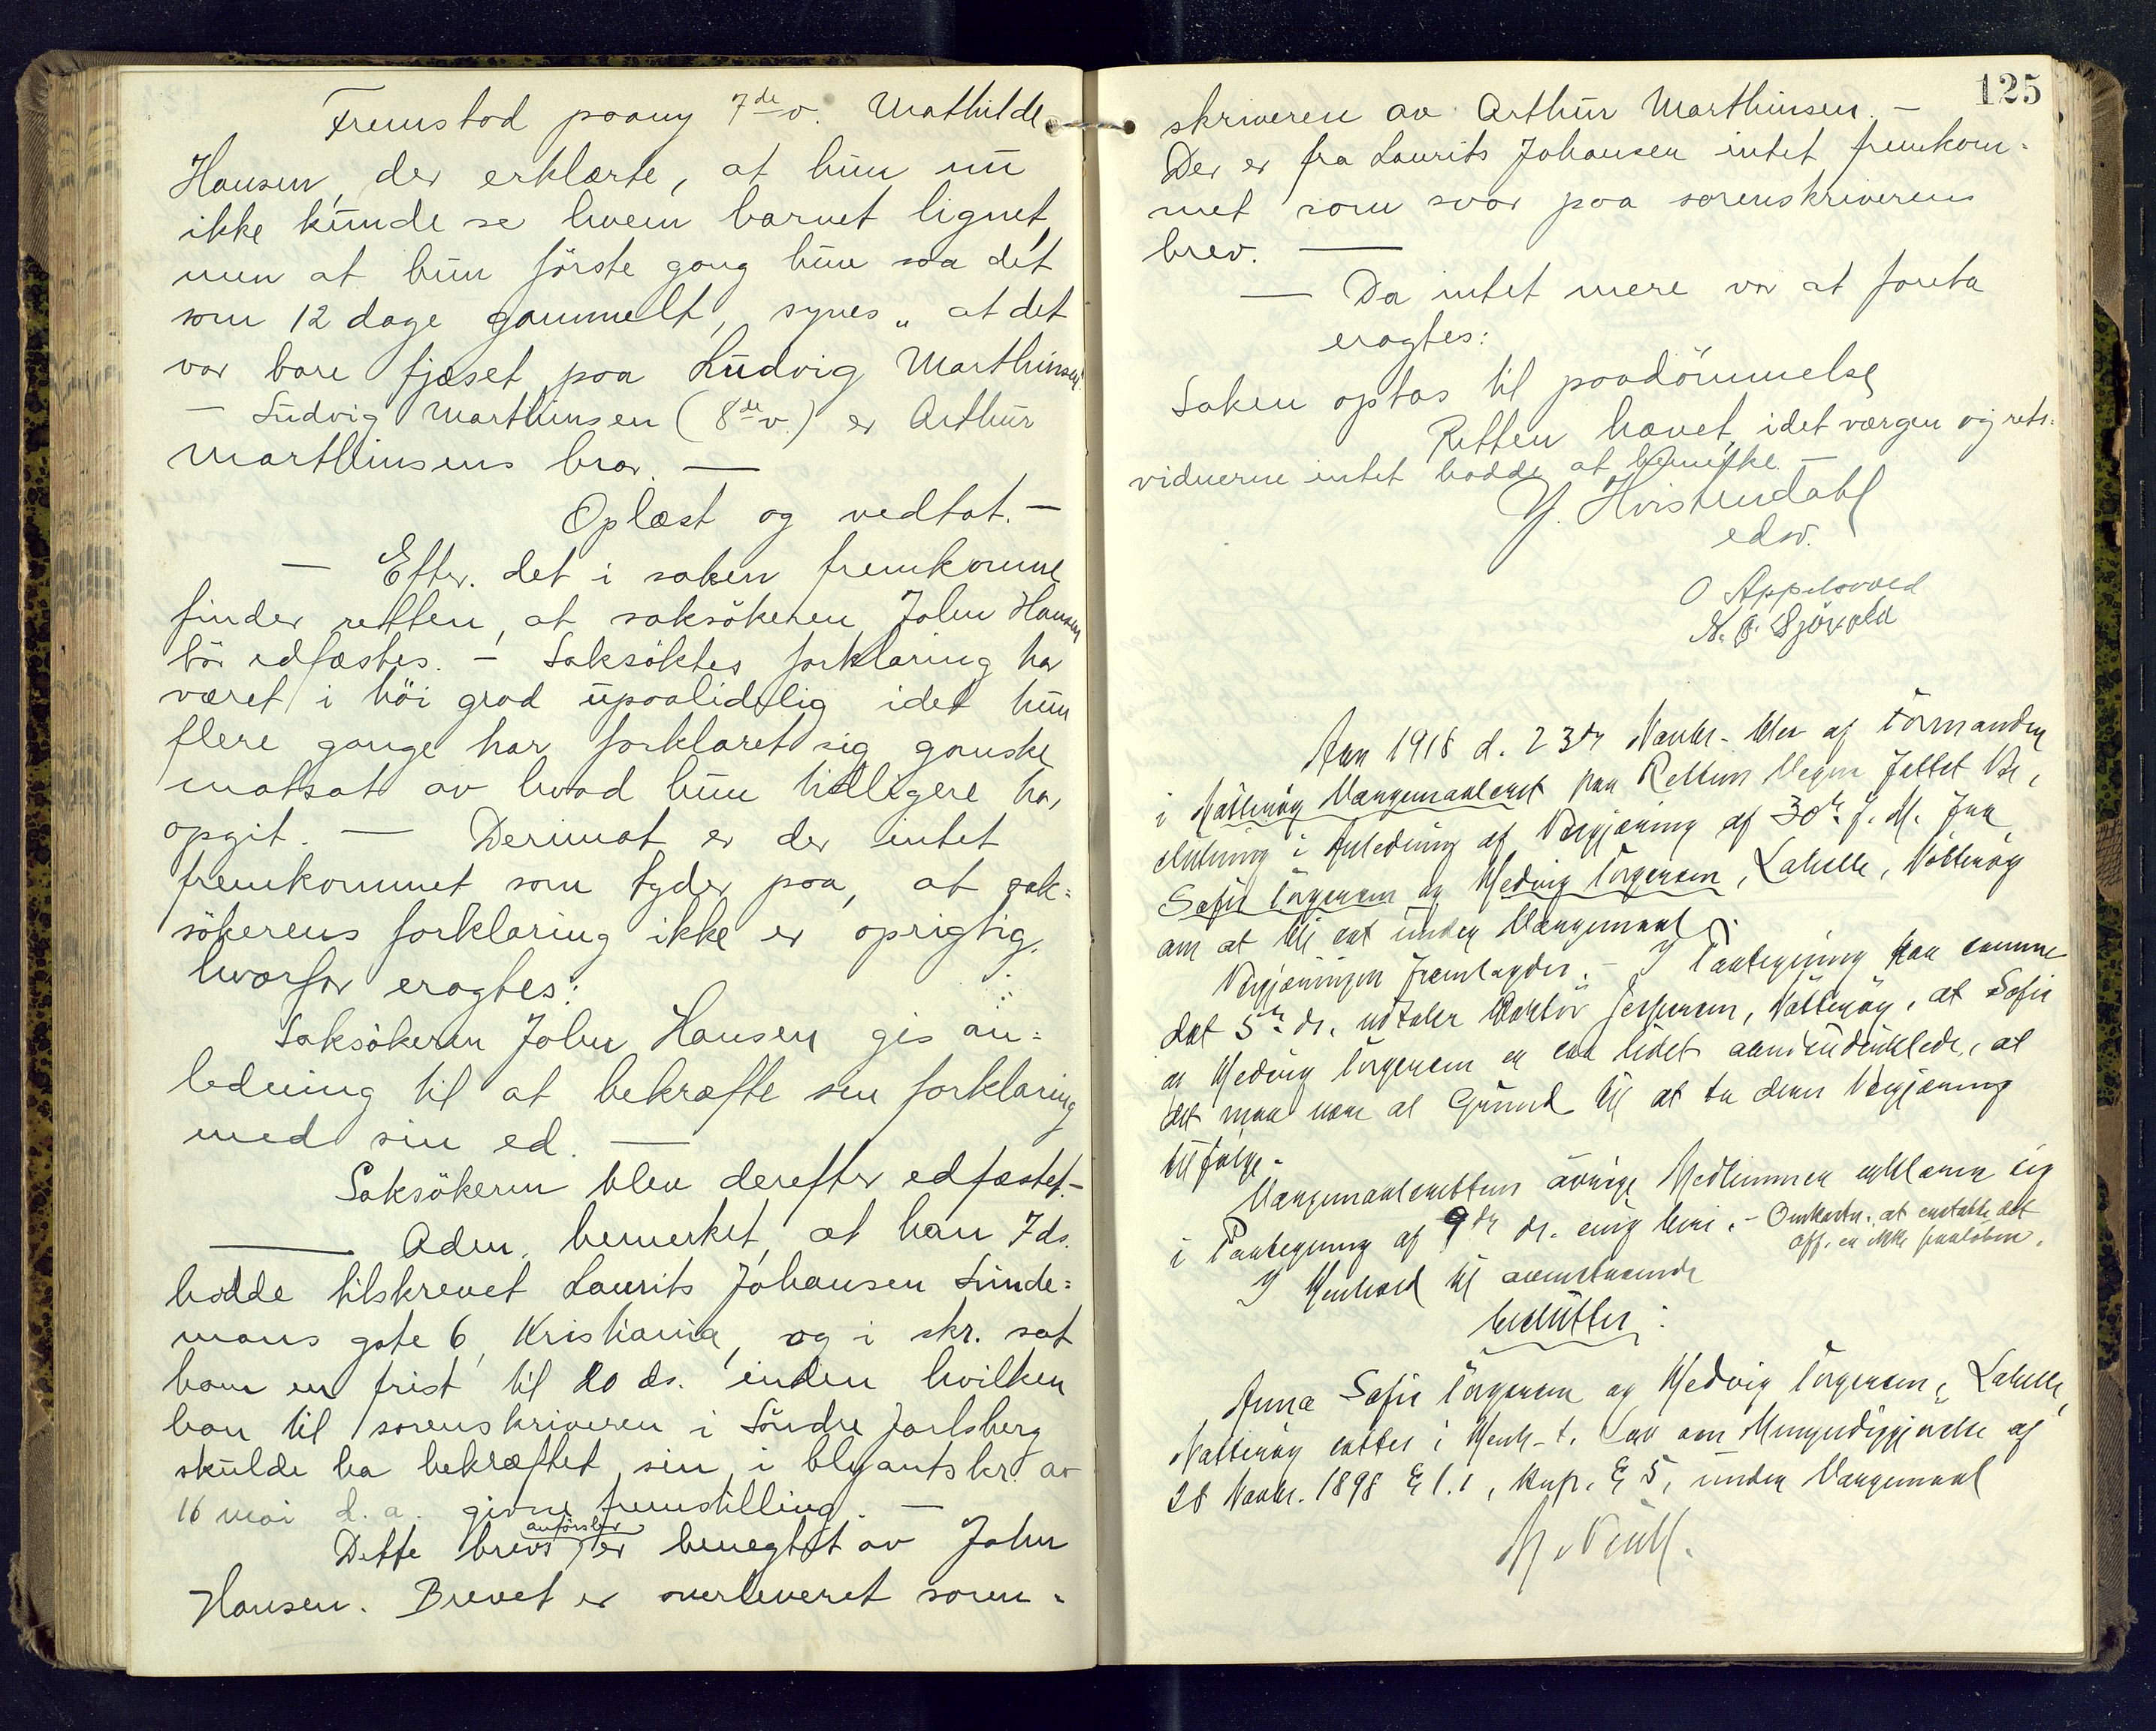 Fremstod paany 7de v. Mathilde
Hansen, der erklærte, at hun nu
ikke kunde se hvem barnet lignet,
men at hun förste gang hun saa det
som 12 dage gammelt, synes „at det
var bare fjæset paa Ludvig Marthinsen"
— Ludvig Marthinsen (8de v.) er Arthur
Marthinsens bror. —
Oplæst og vedtat. —
— Efter det i saken fremkomne
finder retten, at saksökeren John Hansen
bör edfæstes. — Saksöktes forklaring har
været i höi grad upaalidelig idet hun
flere gange har forklaret sig ganske
motsat av hvad hun tidligere har
opgit. — Derimot er der intet
fremkommet som tyder paa, at sak=
sökerens forklaring ikke er oprigtig,
hvorfor eragtes:
Saksökeren John Hansen gis an=
ledning til at bekræfte sin forklaring
med sin ed. —
Saksökeren blev derefter edfæstet. —
— Adm. bemerket, at han 7 ds.
hadde tilskrevet Laurits Johansen Linde=
mans gate 6, Kristiania, og i skr. sat
ham en frist til 20 ds. inden hvilken
han til sorenskriveren i Söndre Jarlsberg
skulde ha bekræftet sin i blyantskr. av
16 mai d.a. givne fremstilling. —
anförsler
Dette brevs er benegtet av John
Hansen. Brevet er overleveret soren=
125
skriveren av Arthur Marthinsen. —
Der er fra Laurits Johansen intet fremkom=
met som svar paa sorenskriverens
brev. —
— Da intet mere var at foreta
eragtes:
Saken optas til paadömmelse
Retten hævet, idet værgen og rets=
vidnerne intet hadde at bemerke. —
J. Hvistendahl
edsv.
O Appelsvold
N. J. Sjövold
Aar 1918 d. 23de Novbr. blev af Formanden
i Nötteröy Værgemaalsret paa Rettens Vegne fattet Be,
slutning i Anledning af Begjæring af 30te f. M. fra
Sofie Törgersen og Hedvig Törgersen, , Nötteröy
om at bli sat under Værgemaal.
Begjæringen fremlagdes. — I Paategning paa samme
dat 5te ds. udtaler Doktor Jespersen, Nötteröy, at Sofie
og Hedvig Törgersen er saa lidet aandsudviklede, at
det maa være al Grund til at ta deres Begjæring
tilfölge.
Værgemaalsrettens övrige Medlemmer erklærer sig
i Paategning af 9de ds. enig heri. — Omkostn. at erstatte det
off. er ikke paalöbne.
I Henhold til ovenstaaende
besluttes:
Anna Sofie Törgersen og Hedvig Törgersen,
Nötteröy sættes i Henh. t. Lov om Umyndiggjörelse af
28 Novbr. 1898 § 1.1, knp. § 5, under Værgemaal